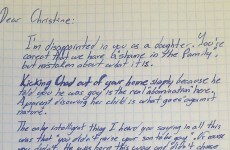 Dear Christine:
I'm disappointed in you as a daughter. You're
correct that we have a shame in the family,
but mistaken about what it is.
Kicking Chad out of your home simply because he
told you he was gay is the real abomination here.
A parent disowning her child is what goes against
nature.
The only intelligent thing I heard you saying in all this
was that you didn't raise your son to be gay. Of course
you didn't. He was born this way and didn't choose